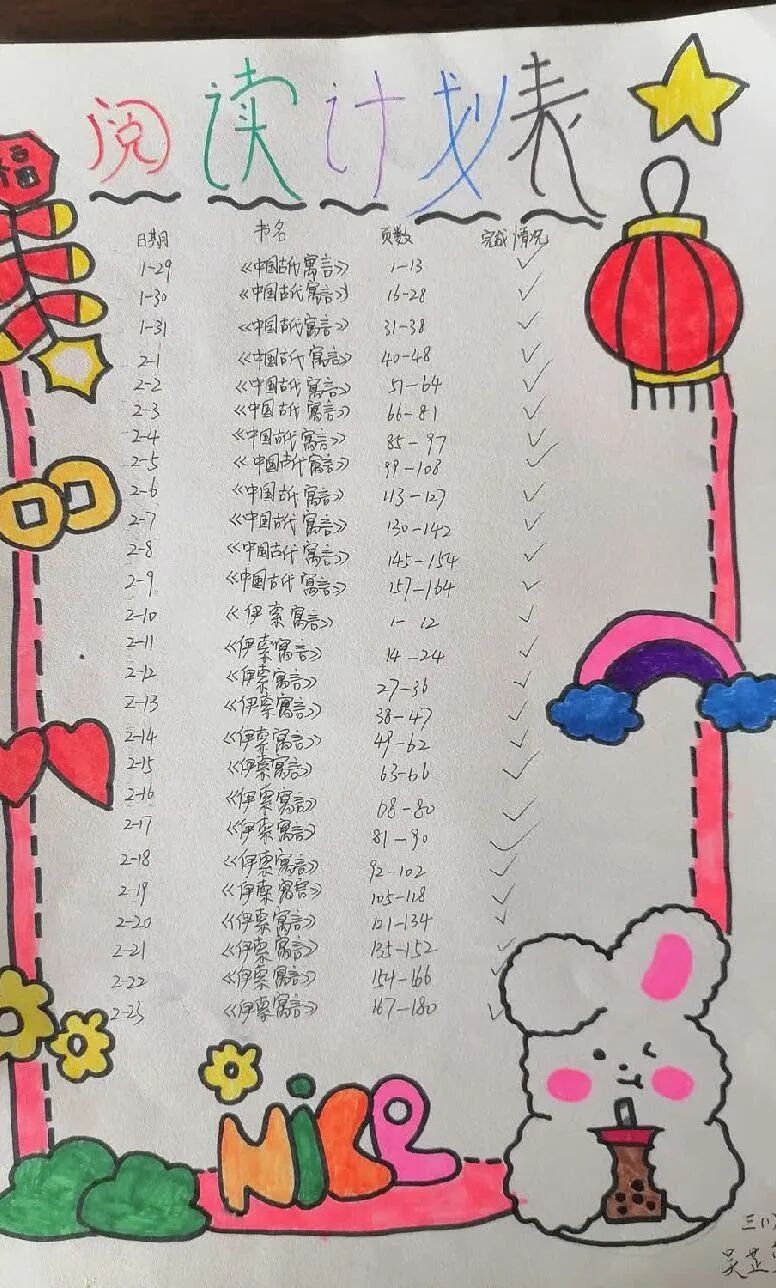 阅读计划表
福
日期 书名 页数 完成情况
1-29 《中国古代寓言》 1-13 ✓
1-30 《中国古代寓言》 16-28 ✓
1-31 《中国古代寓言》 31-38 ✓
2-1 《中国古代寓言》 40-48 ✓
2-2 《中国古代寓言》 51-64 ✓
2-3 《中国古代寓言》 66-81 ✓
2-4 《中国古代寓言》 85-97 ✓
2-5 《中国古代寓言》 99-108 ✓
2-6 《中国古代寓言》 113-127 ✓
2-7 《中国古代寓言》 130-142 ✓
2-8 《中国古代寓言》 145-154 ✓
2-9 《中国古代寓言》 157-164 ✓
2-10 《伊索寓言》 1-12 ✓
2-11 《伊索寓言》 14-24 ✓
2-12 《伊索寓言》 27-36 ✓
2-13 《伊索寓言》 38-47 ✓
2-14 《伊索寓言》 49-62 ✓
2-15 《伊索寓言》 63-66 ✓
2-16 《伊索寓言》 68-80 ✓
2-17 《伊索寓言》 81-90 ✓
2-18 《伊索寓言》 92-102 ✓
2-19 《伊索寓言》 105-118 ✓
2-20 《伊索寓言》 121-134 ✓
2-21 《伊索寓言》 135-152 ✓
2-22 《伊索寓言》 154-166 ✓
2-23 《伊索寓言》 167-180 ✓
Nice
吴芷